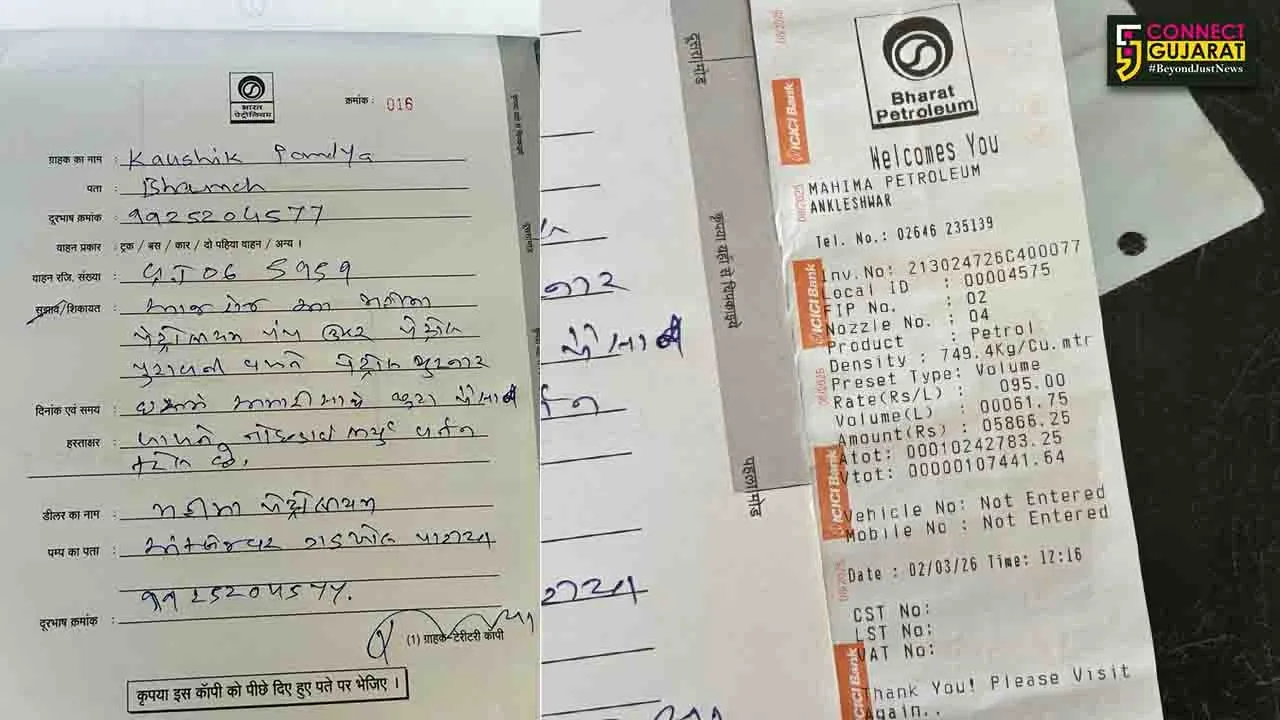 भारत
पेट्रोलियम
क्रमांक : 016
ग्राहक का नाम : Kaushik Pandya
पता : Bharuch
दूरभाष क्रमांक : 9925204577
वाहन प्रकार : ट्रक / बस / कार / दो पहिया वाहन / अन्य ।
वाहन रजि. संख्या : GJ06 5959
सुझाव/शिकायत :
પેટ્રોલિયમ પંપ ઉપર પેટ્રોલ
પુરાવતી વખતે પેટ્રોલ પુરનાર
दिनांक एवं समय :
हस्ताक्षर : વર્તન
કરેલ છે.
डीलर का नाम : મહીમા પેટ્રોલીયમ
पम्प का पता : અંકલેશ્વર ગડખોલ પાટીયા
9925204577.
दूरभाष क्रमांक :
(1) ग्राहक-टेरीटरी कॉपी
कृपया इस कॉपी को पीछे दिए हुए पते पर भेजिए ।
दूसरा मोड़
कृपया यहाँ से चिपकाइये
पहला मोड़
CONNECT
GUJARAT
#BeyondJustNews
ICICI Bank
08/2025
Bharat
Petroleum
Welcomes You
MAHIMA PETROLEUM
ANKLESHWAR
Tel. No.: 02646 235139
Inv.No: 213024726C400077
Local ID : 00004575
FIP No. : 02
Nozzle No. : 04
Product : Petrol
Density : 749.4Kg/Cu.mtr
Preset Type: Volume
Rate(Rs/L) : 095.00
Volume(L) : 00061.75
Amount(Rs) : 05866.25
Atot: 00010242783.25
Vtot: 00000107441.64
Vehicle No: Not Entered
Mobile No : Not Entered
Date : 02/03/26 Time: 12:16
CST No:
LST No:
VAT No:
Thank You! Please Visit
Again..